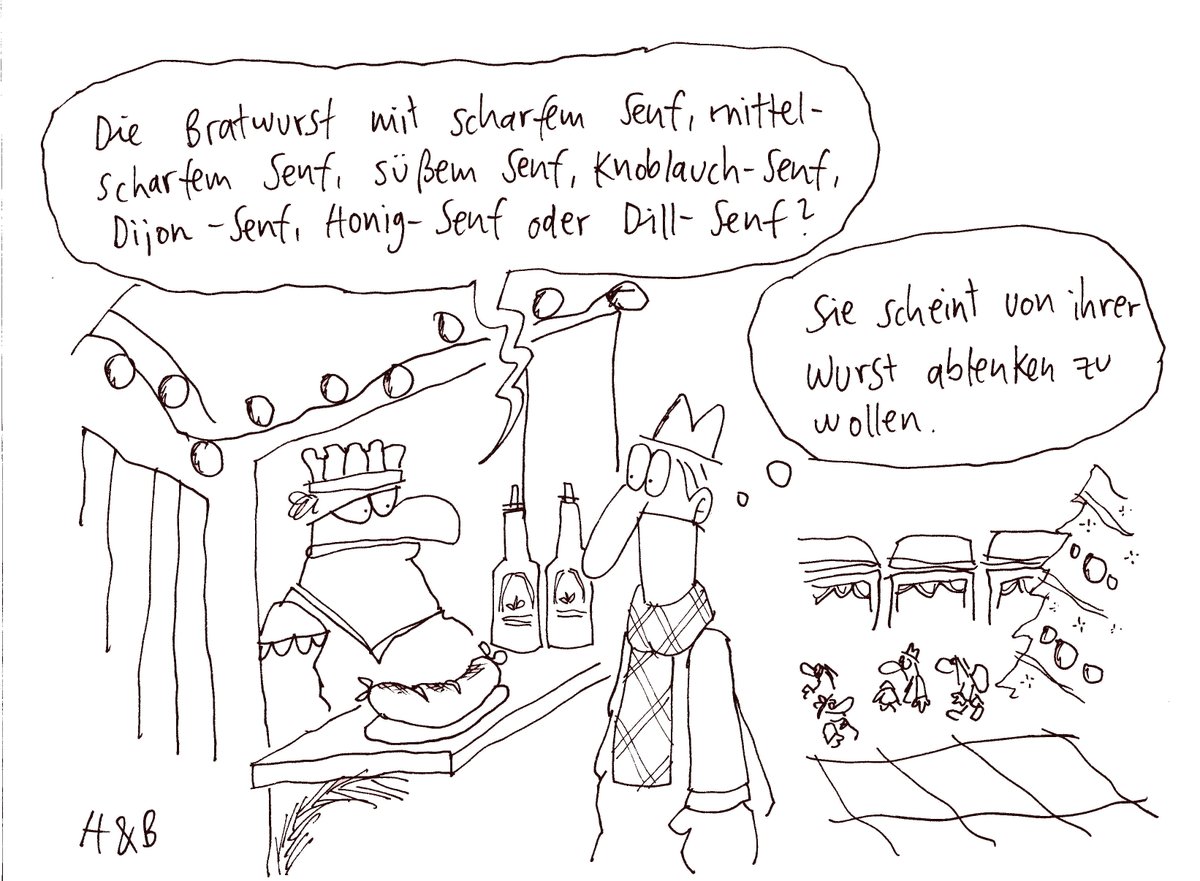 Die Bratwurst mit scharfem Senf, mittel-
scharfem Senf, süßem Senf, Knoblauch-Senf,
Dijon-Senf, Honig-Senf oder Dill-Senf?
Sie scheint von ihrer
Wurst ablenken zu
wollen.
H&B